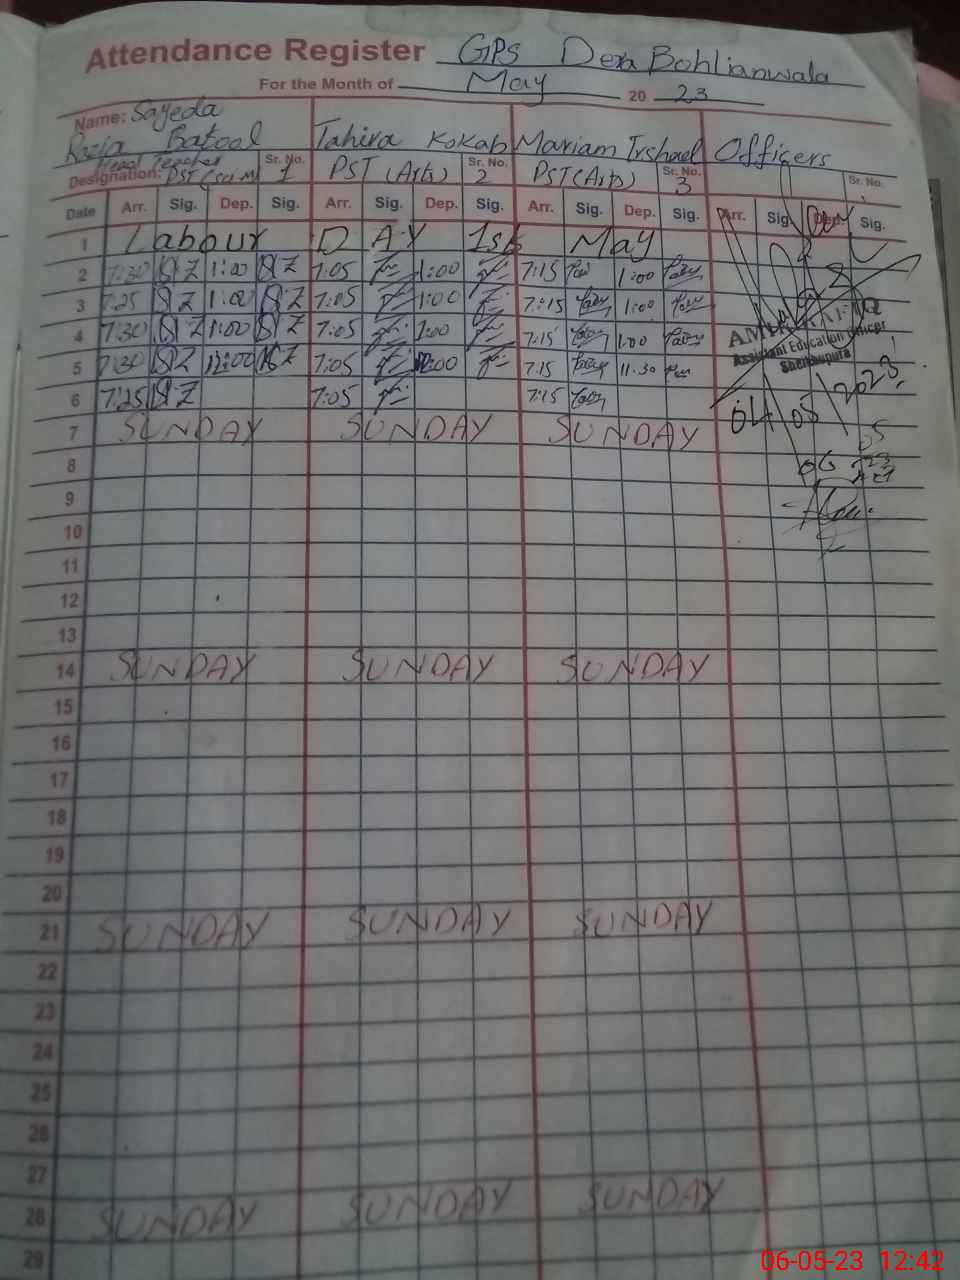 Attendance Register GPS Dera Bohlianwala
For the Month of May 20 23
Name: Sayeda
Razia Batool Tahira Kokab Mariam Irshad Officers
Head Teacher
Designation: PST (Sci-M) Sr. No. 1 PST (Arts) Sr. No. 2 PST (Arts) Sr. No. 3 Sr. No.
Date Arr. Sig. Dep. Sig. Arr. Sig. Dep. Sig. Arr. Sig. Dep. Sig. Arr. Sig. Dep. Sig.
1 Labour DAY 1st May
2 7:30 1:00 7:05 1:00 7:15 1:00
3 7:25 1:00 7:05 1:00 7:15 1:00
4 7:30 1:00 7:05 1:00 7:15 1:00
Assistant Education Officer
Sheikhupura
5 7:30 7:05 7:15 11:30
6 7:25 7:05 7:15
04/05/2023
7 SUNDAY SUNDAY SUNDAY
8
9
10
11
12
13
14 SUNDAY SUNDAY SUNDAY
15
16
17
18
19
20
21 SUNDAY SUNDAY SUNDAY
22
23
24
25
26
27
28 SUNDAY SUNDAY SUNDAY
29
06-05-23 12:42